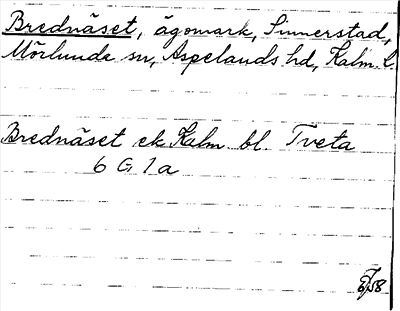 Brednäset, ägomark, Sinnerstad,
Mörlunda sn, Aspelands hd, Kalm. l.
Brednäset ek Kalm bl. Tveta
6 G 1 a